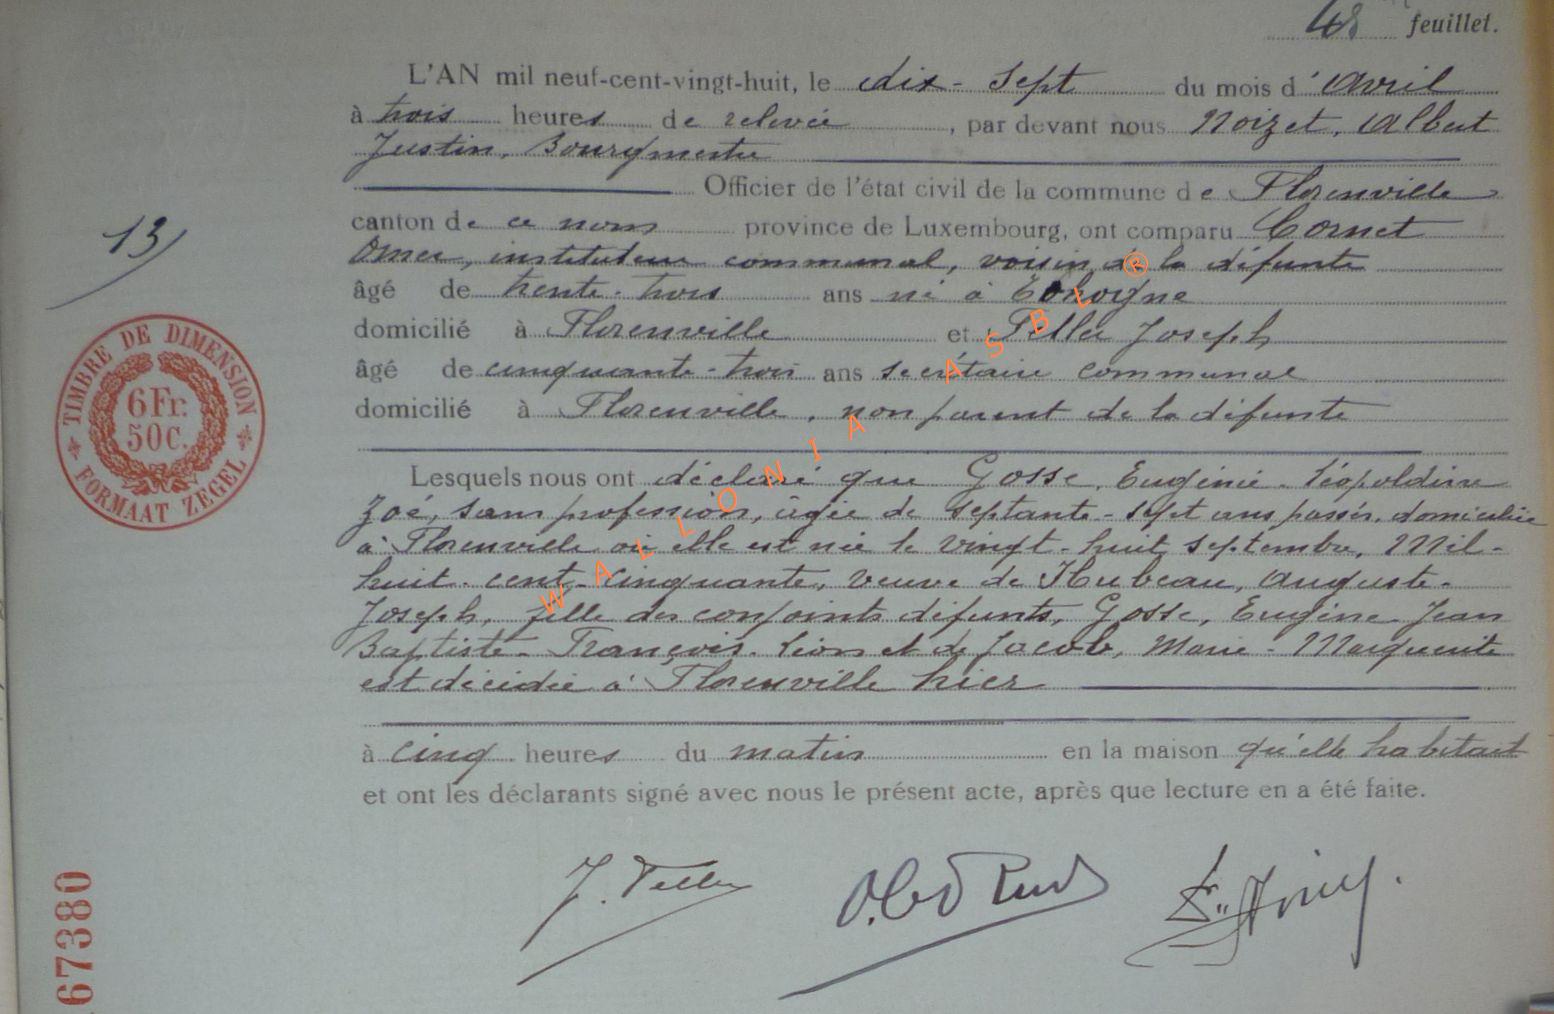 48 feuillet.
L'AN mil neuf-cent-vingt-huit, le dix-sept du mois d'avril
à trois heures de relevée, par devant nous Noizet, Albert
Justin, Bourgmestre
Officier de l'état civil de la commune de Florenville
canton de ce nom province de Luxembourg, ont comparu Cornet
Omer, instituteur communal, voisin de la défunte
13
âgé de trente-trois ans né à Eohogne
domicilié à Florenville et Feller Joseph
âgé de cinquante-trois ans secrétaire communal
domicilié à Florenville, non parent de la défunte
TIMBRE DE DIMENSION
6 Fr.
50 C.
FORMAAT ZEGEL
Lesquels nous ont déclaré que Gosse, Eugénie-Léopoldine
Zoé, sans profession, âgée de septante-sept ans passés, domiciliée
à Florenville où elle est née le vingt-huit septembre, Mil-
huit-cent-cinquante, veuve de Hubeau, Auguste-
Joseph, fille des conjoints défunts, Gosse, Eugène-Jean
Baptiste-François-Léon et de Jacob, Marie-Marguerite
est décédée à Florenville hier
à cinq heures du matin en la maison qu'elle habitait
et ont les déclarants signé avec nous le présent acte, après que lecture en a été faite.
J. Feller
67380
WALLONIA ASBL ®